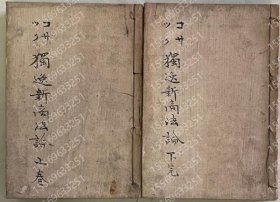 コサ
ツク
獨逸新商法論 上卷
コサ
ツク
獨逸新商法論 下卷